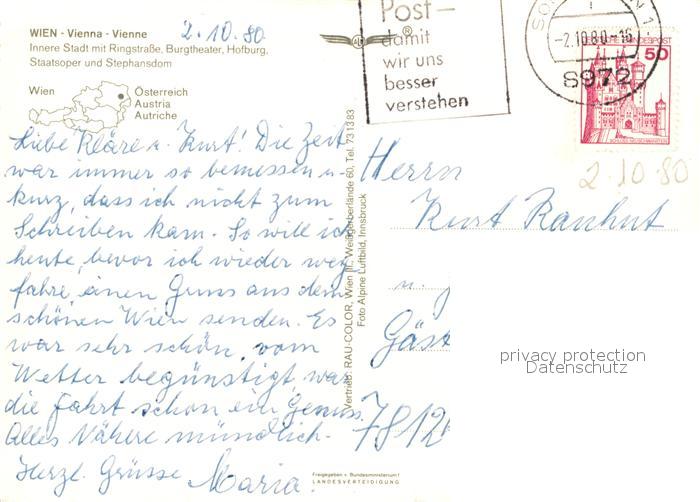 WIEN - Vienna - Vienne
2.10.80
Innere Stadt mit Ringstraße, Burgtheater, Hofburg,
Staatsoper und Stephansdom
Wien
Österreich
Austria
Autriche
Liebe Kläre u. Kurt! Die Zeit
war immer so bemessen u.
kurz, dass ich nicht zum
Schreiben kam. So will ich
heute, bevor ich wieder weg
fahre, einen Gruss aus dem
schönen Wien senden. Es
war sehr schön, vom
Wetter begünstigt, war
die Fahrt schon ein Genuss.
Alles Nähere mündlich.
Herzl. Grüsse Maria.
Vertrieb: RAU-COLOR, Wien III, Weißgerberlände 60, Tel. 731383
Foto Alpine Luftbild, Innsbruck
Freigegeben v. Bundesministerium f.
LANDESVERTEIDIGUNG
Post-
damit
wir uns
besser
verstehen
-2.10.80-16
8972
BUNDESPOST
50
SCHLOSS NEUSCHWANSTEIN
2.10.80
Herrn
Kurt Ranhut
u.
Gäst
7812
privacy protection
Datenschutz